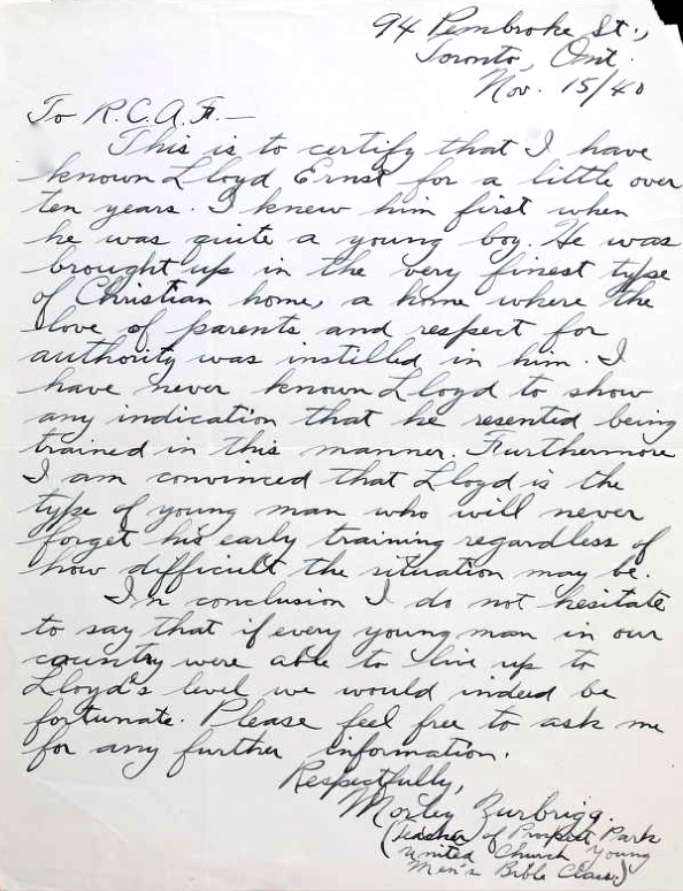 94 Pembroke St.,
Toronto, Ont.
Nov. 15/40
To R.C.A.F.—
This is to certify that I have
known Lloyd Ernst for a little over
ten years. I knew him first when
he was quite a young boy. He was
brought up in the very finest type
of Christian home, a home where the
love of parents and respect for
authority was instilled in him. I
have never known Lloyd to show
any indication that he resented being
trained in this manner. Furthermore
I am convinced that Lloyd is the
type of young man who will never
forget his early training regardless of
how difficult the situation may be.
In conclusion I do not hesitate
to say that if every young man in our
country were able to live up to
Lloyd's level we would indeed be
fortunate. Please feel free to ask me
for any further information.
Respectfully,
Morley Zurbrigg.
(Teacher of Prospect Park
United Church Young
Men's Bible Class.)